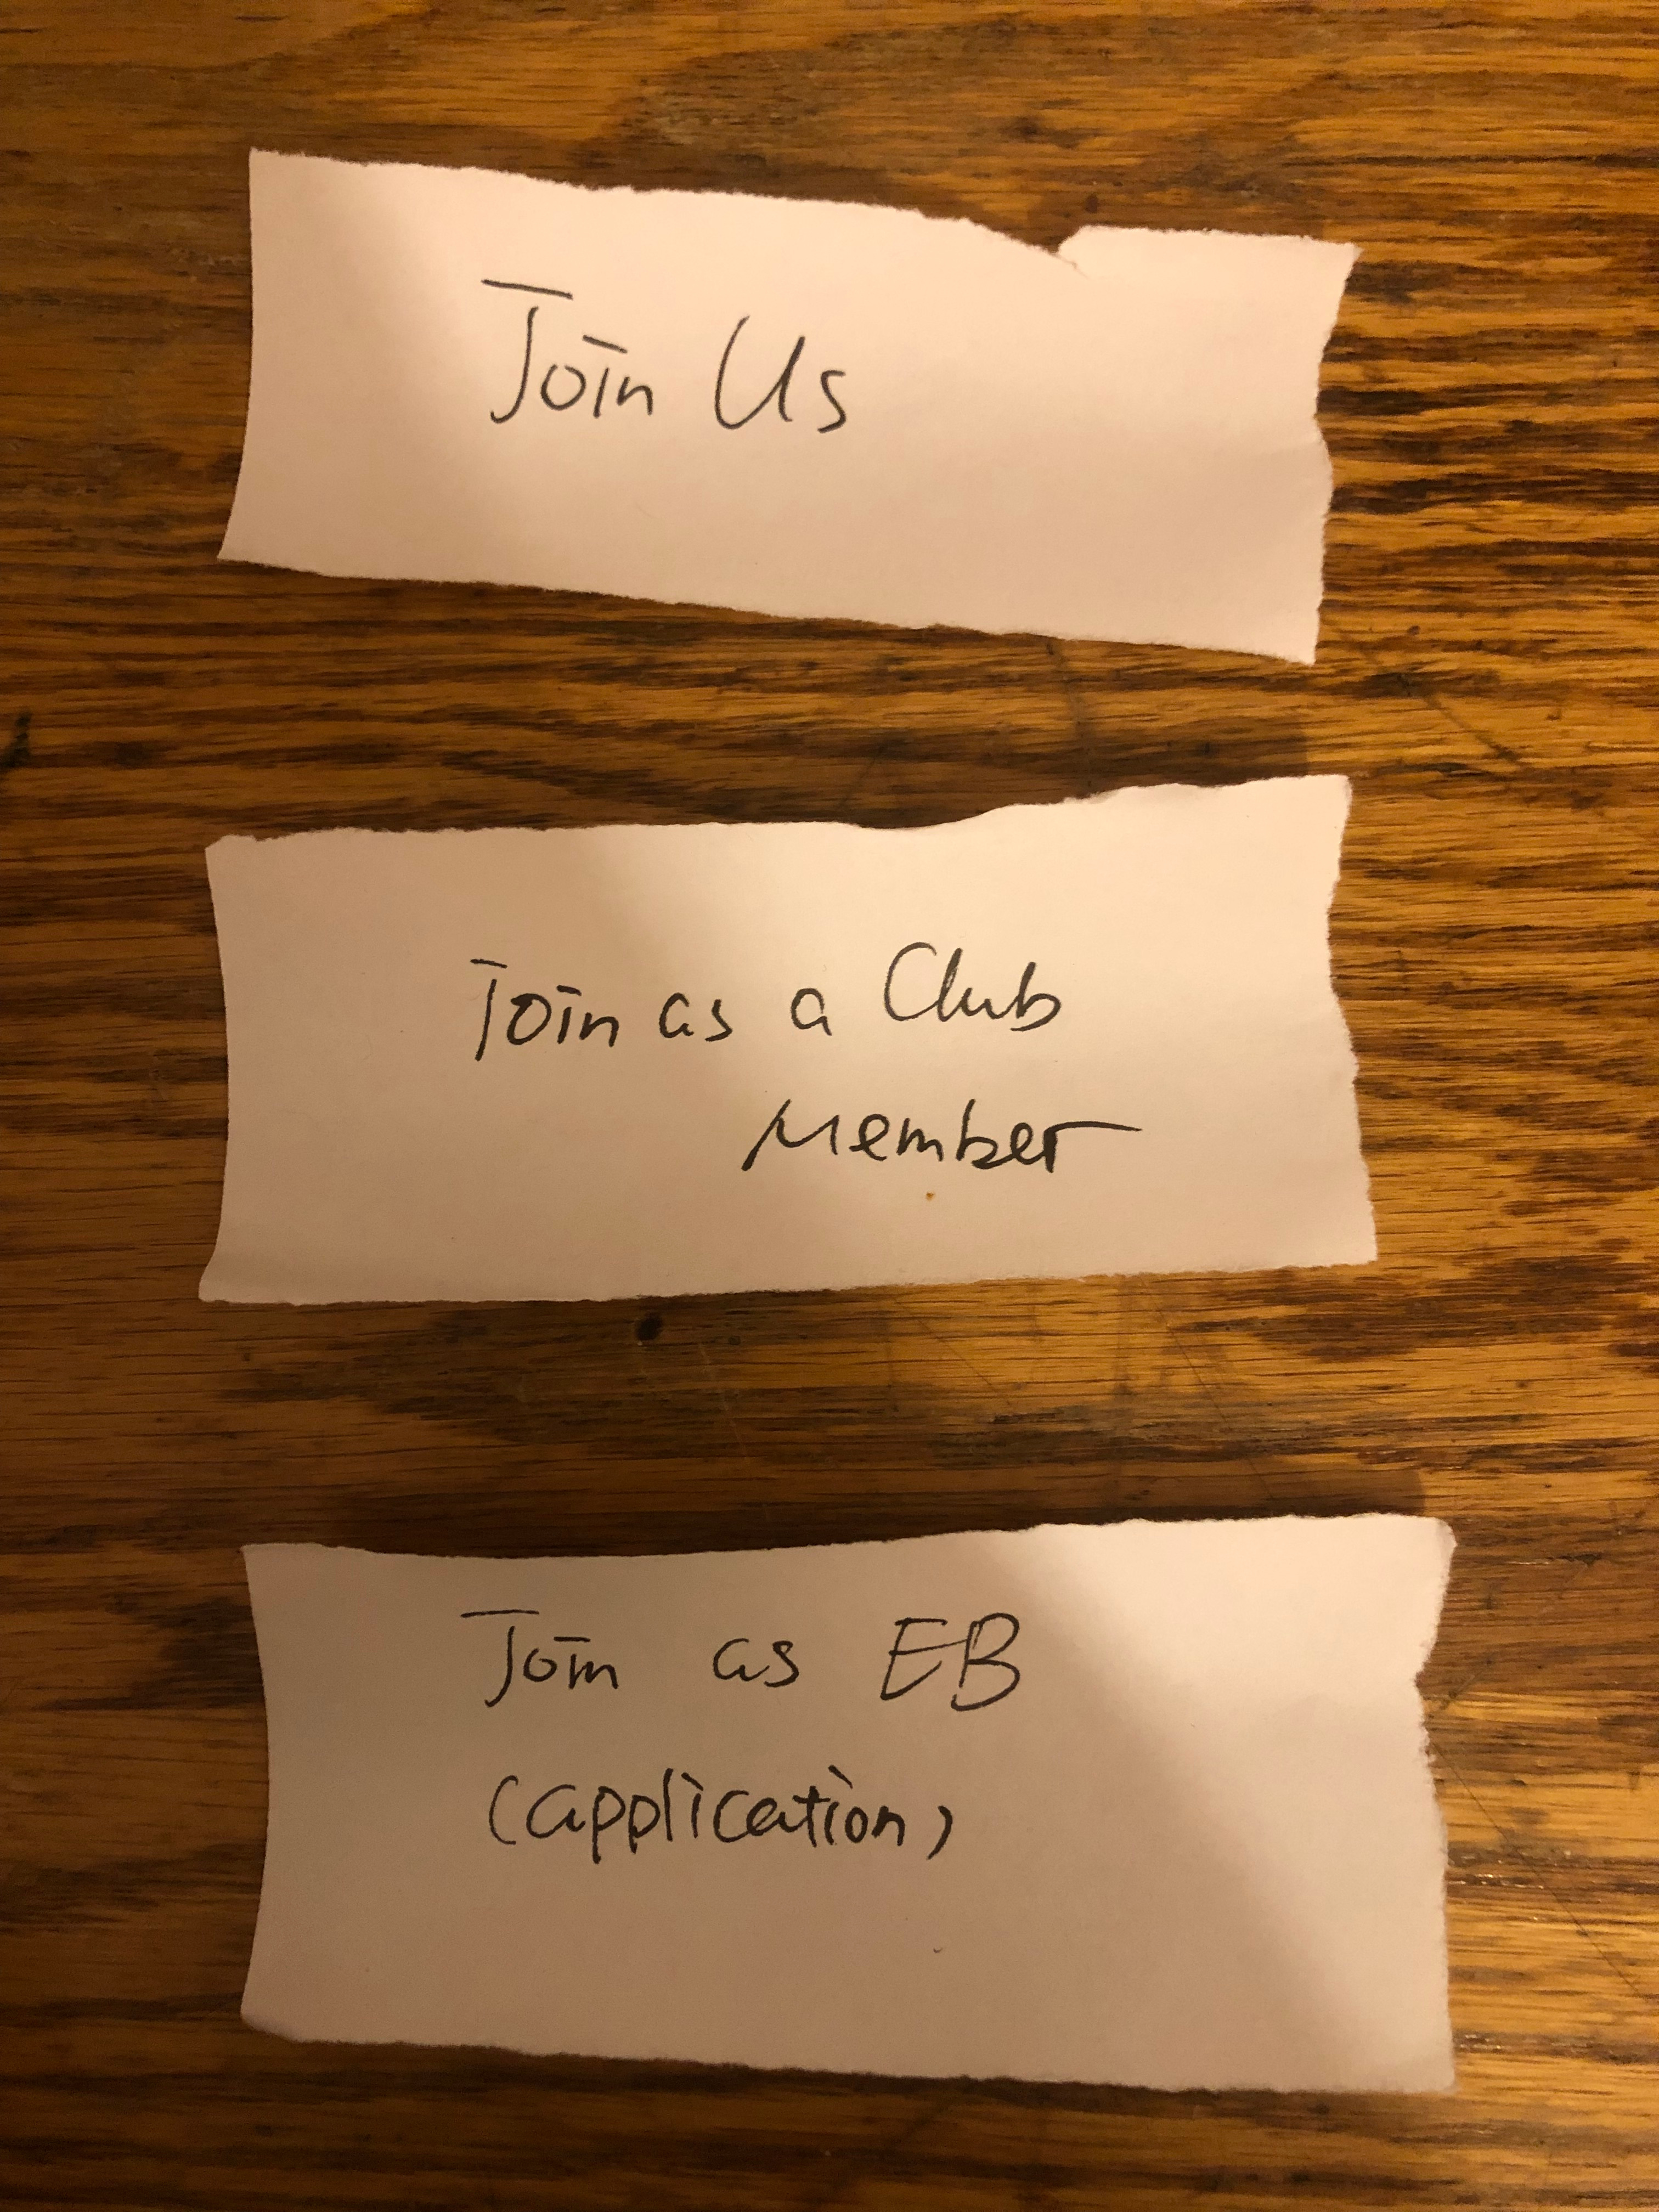 Join Us
Join as a Club
Member
Join as EB
(application)